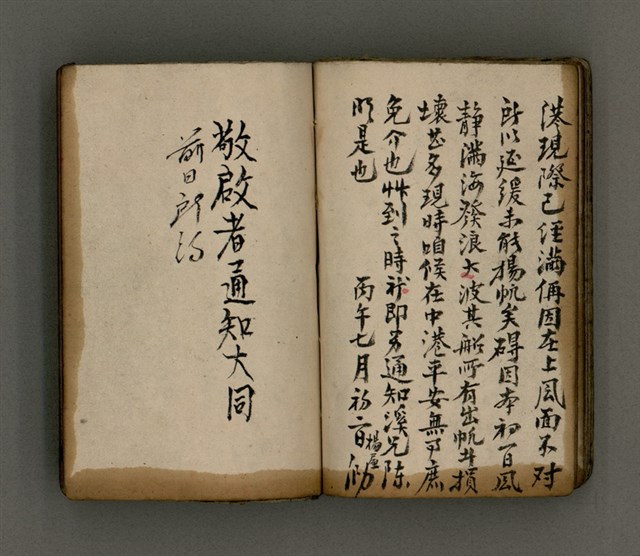 港現際已經滿俩因在上風面不对
所以延缓未能揚帆矣碍因本初一日風
静滿海發浪大波其船所有出帆井損
壞甚多現時咱候在中港平安無事庶
免介也艸到之時祈即另通知溪兄陈
順是也
丙午七月初二日 楊
敬啟者通知大同
前日所